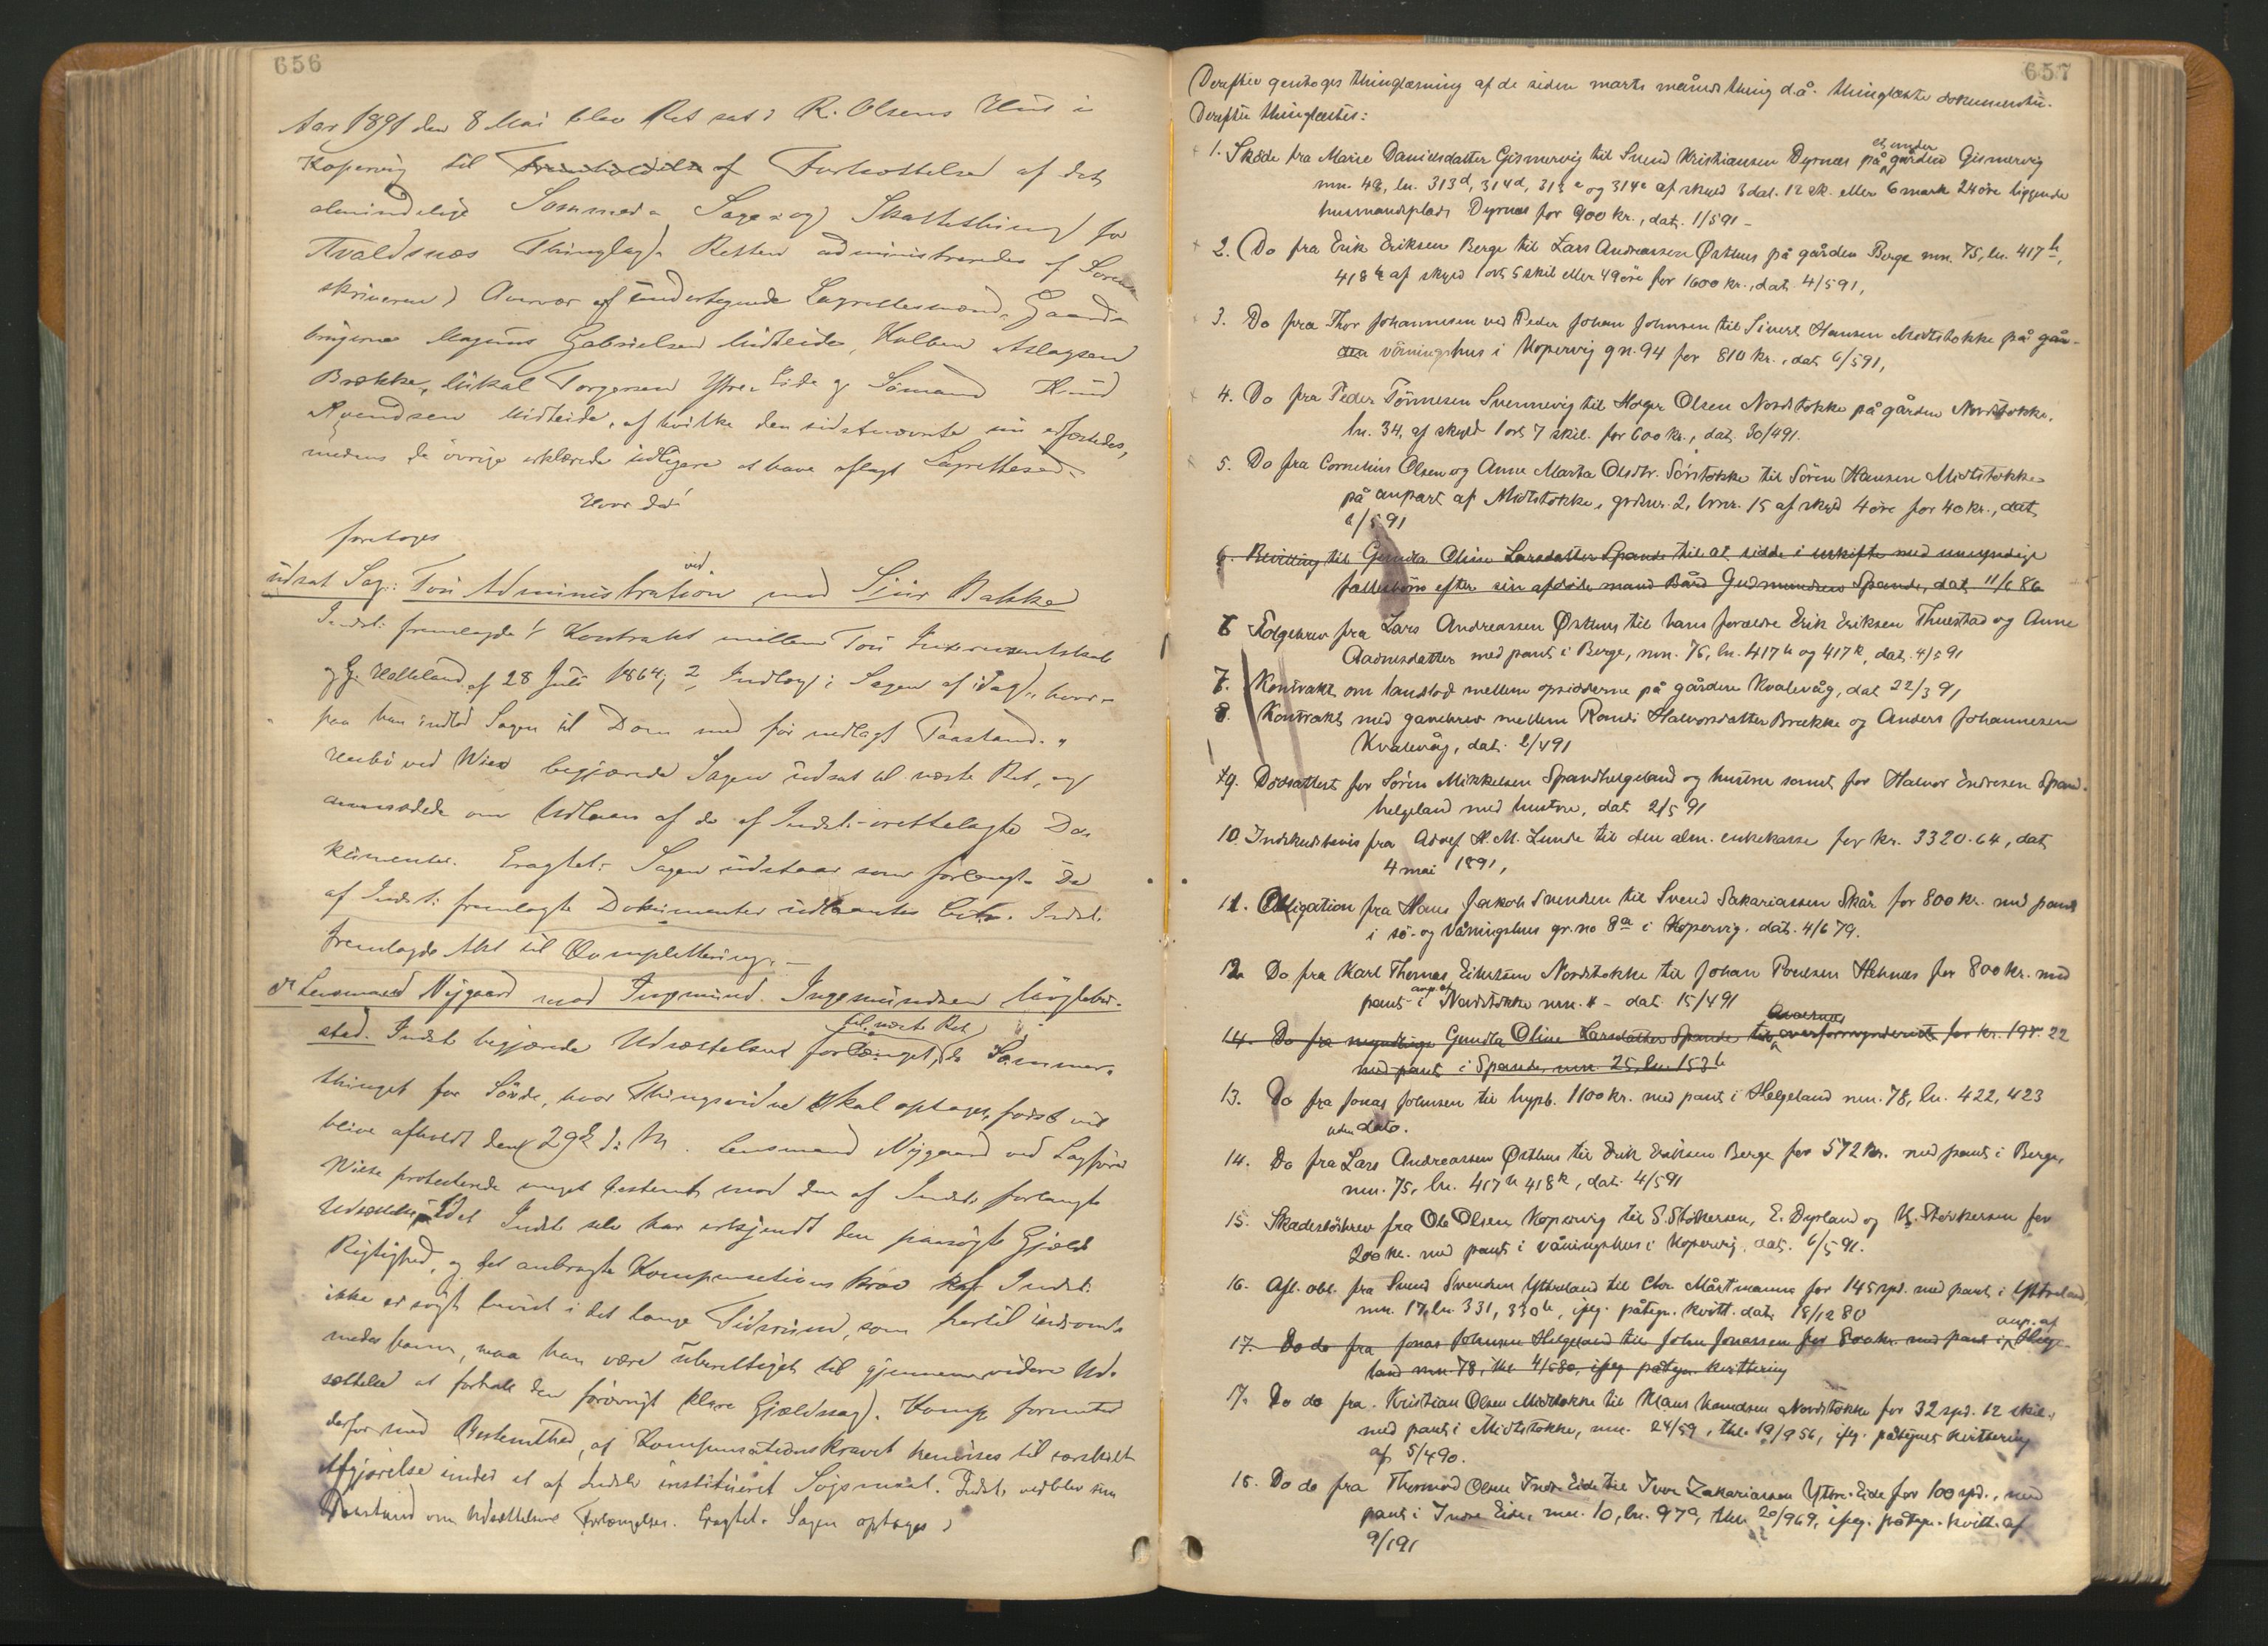 656
Aar 1891 den 8 Mai blev Ret sat i R. Olsens Hus i
Kopervig til Fremholdelse af Fortsættelse af det
almindelige Sommer- Sage- og Skattething for
Avaldsnæs Thinglag. Retten administreredes af Soren-
skriveren i Overvær af undertegnede Lagrettesmænd, Gaard-
brugerne Magnus Gabrielsen Midteide, Kolben Aslagsen
Brække, Mikal Torgersen Ytre-Eide og Sømand Knud
Svendsen Midteide, af hvilke den sidstnævnte nu edfæstedes,
medens de øvrige erklærede tidligere at have aflagt Lagrettesed.
Hvor da!
foretoges
udsat Sag: Tou Administration ved mod Siur Bakke
Indst. fremlagde 1, Kontrakt mellem Tou Interessentskab
og G. Helleland af 28 Juli 1864; 2, Indlæg i Sagen af i Dag, hvor-
paa han indlod Sagen til Dom med før nedlagt Paastand.
ved Wiese begjærede Sagen udsat til næste Ret, og
anmodede om Udlaan af de af Indst. irettelagte Do-
kumenter. Eragtet: Sagen udstaar som forlangt. De
af Indst. fremlagte Dokumenter udlaantes Citr. Indst.
fremlagde Akt til Completering. —
Lensmand Nygaard mod Ingmund. Ingemundsen
sted. Indst. begjærede Udsættelsen forlænget til næste Ret, da Sommer-
thinget for Søvde, hvor Thingsvidne skal optages, først vil
blive afholdt den 29de d: M. Lensmand Nygaard ved Sagfører
Wiese protesterede meget bestemt mod den af Indst. forlangte
Udsættelse, idet Indst. selv har erkjendt den paasøgte Gjælds
Rigtighed, og det anbragte Kompensationskrav af Indst.
ikke er søgt bevist i det lange Tidsrum, som hertil indrømme-
medes ham, maa han være uberettiget til gjennem videre Ud-
sættelse at forhale den forøvrigt klare Gjældssag. Komp. formente
derfor med Bestemthed, at Kompensationskravet henvises til særskilt
Afgjørelse under et af Indst. institueret Søgsmaal. Indst. vedblev sin
Paastand om Udsættelsens Forlængelse. Eragtet: Sagen optages
657
Derefter gentoges thinglæsning af de siden marts måneds thing d.å. thinglæste dokumenter.
Derefter thinglæstes:
1. Skøde fra Marie Danielsdatter Gismervig til Svend Kristiansen Dyrnes på et under gården Gismervig
mn. 48, ln. 313d, 314d, 313e og 314e af skyld 3 dal. 12 sk. eller 6 mark 24 øre liggende
husmandsplads Dyrnes for 900 kr., dat. 1/5 91 –
2. Do fra Erik Eriksen Berge til Lars Andreassen Østhus på gården Berge mn. 75, ln. 417h,
418k af skyld 1 ort 5 skil eller 49 øre for 1600 kr., dat. 4/5 91,
3. Do fra Thor Johannesen ved Peder Johan Johnsen til Sivert Hansen Midtstokke på går-
den våningshus i Kopervig gn. 94 for 810 kr., dat. 6/5 91,
4. Do fra Peder Tönnesen Svennevig til Holger Olsen Nordstokke på gården Nordstokke,
ln. 34, af skyld 1 ort 7 skil. for 600 kr., dat. 30/4 91.
5. Do fra Cornelius Olsen og Anne Marta Olsdtr. Sörstokke til Sören Hansen Midtstokke
på anpart af Midtstokke, grdnr. 2, brnr. 15 af skyld 4 öre for 40 kr., dat.
6/5 91
6. Bevilling til Gundla Oline Larsdatter Spande til at sidde i uskifte med umyndige
fællesbörn efter sin afdöde mand Bård Gudmundsen Spande, dat. 11/6 86
6 Følgebrev fra Lars Andreassen Østhus til hans forældre Erik Eriksen Thuestad og Anne
Aadnesdatter med pant i Berge, mn. 75, ln. 417h og 417k, dat. 4/5 91
7. Kontrakt om landlod mellem opsidderne på gården Kvalevåg, dat 22/3 91
8. Kontrakt med gavebrev mellem Randi Halvorsdatter Brække og Anders Johannesen
Kvalevåg, dat. 2/4 91
9. Dödsattest for Sören Mikkelsen Spandhelgeland og hustru samt for Halvor Endresen Spand-
helgeland med hustru, dat 2/5 91
10. Indskudsbevis fra Adolf H. M. Lunde til den alm. enkekasse for kr. 3320.64, dat
4 mai 1891,
11. Obligation fra Hans Jakob Svendsen til Svend Sakariassen Skår for 800 kr. med pant
i sö- og våningshus gr. no 8a i Kopervig. dat. 4/6 79.
12 Do fra Karl Thomas Eilertsen Nordstokke til Johan Poulsen Hehnes for 800 kr. med
pant i anp. af Nordstokke mn. 11 – dat. 15/4 91
14. Do fra myndling Gundla Oline Larsdatter Spande til overformynderiet for kr. 198.22
med pant i Spande, mn. 25, ln 153b
13. Do fra Jonas Johnsen til hypb. 1100 kr. med pant i Helgeland mn. 78, ln. 422, 423
uden dato.
14. Do fra Lars Andreassen Østhus til Erik Eriksen Berge for 572 kr. med pant i Berge,
mn. 75, ln. 417h 418k, dat. 4/5 91
15. Skadeslösbrev fra Ole Olsen Kopervig til S. Störkersen, E. Dyrland og K. Störkersen for
200 kr. med pant i våningshus i Kopervig, dat. 6/5 91.
16. Afl. obl. fra Svend Svendsen Ytreland til Chr. Mårtmann for 145 spd. med pant i Ytreland,
mn. 17, ln. 331, 330b, ifg. påtegn. kvitt. dat. 18/12 80
17. Do do fra Jonas Johnsen Helgeland til John Jonassen for 800 kr. med pant i anp. af Helge-
land mn. 78, thl 4/5 80, ifølg påtegn. kvittering
17. Do do fra Kristian Olsen Midtstokke til Klaus Knudsen Nordstokke for 32 spd. 12 skil.,
med pant i Midtstokke, mn. 24/59, thl. 19/9 56, ifg. påtegnet kvittering
af 5/4 90.
18. Do do fra Thormod Olsen Indre-Eide til Iver Zakariassen Ytre-Eide for 100 spd., med
pant i Indre Eide, mn. 10, ln. 97a, thl. 20/9 69, ifølg. påtegn. kvitt. af
9/1 91